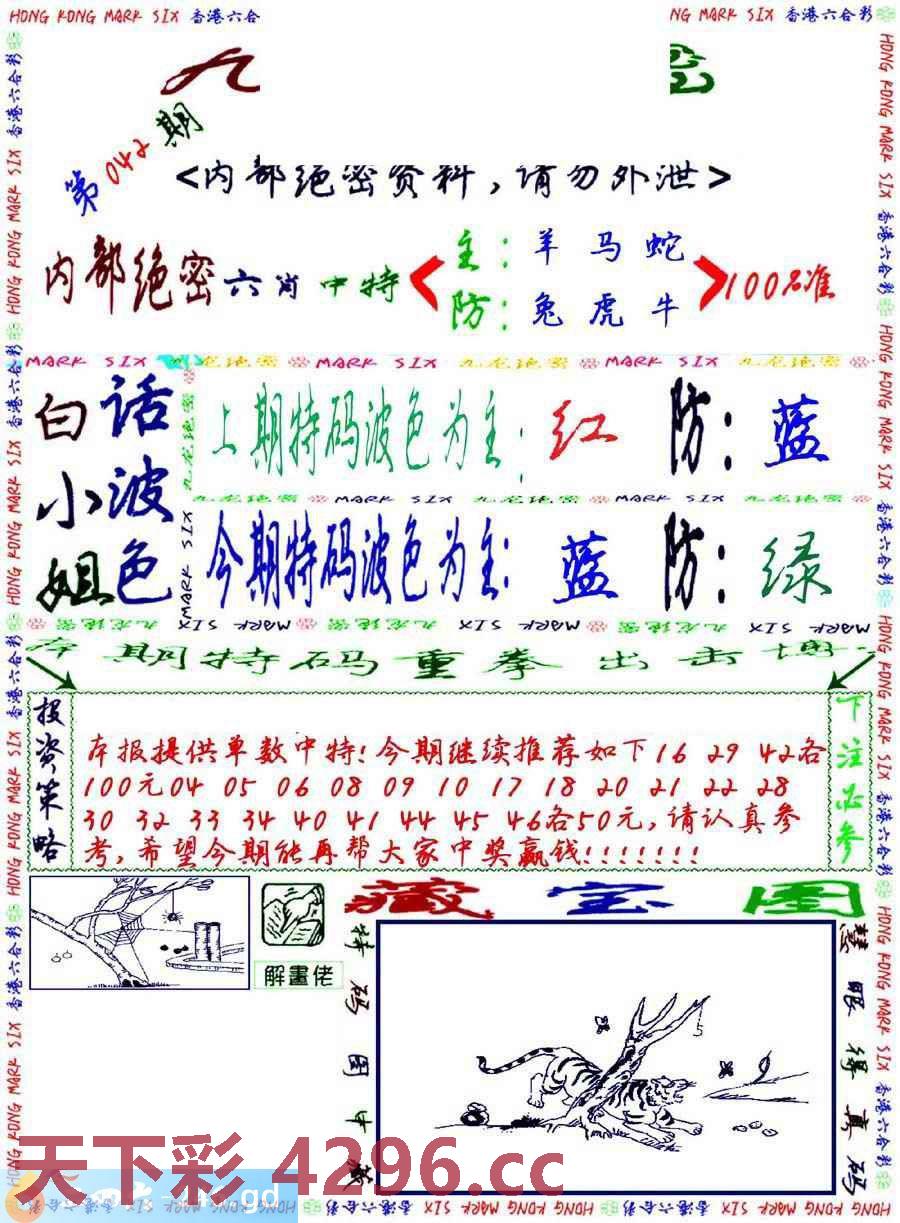 HONG KONG MARK SIX 香港六合
NG MARK SIX 香港六合彩
九
密
第042期
<内部绝密资料,请勿外泄>
内部绝密六肖中特
主:羊马蛇
防:兔虎牛
100%准
MARK SIX 九龙绝密 MARK SIX 九龙绝密 MARK SIX 九龙绝密
白话
小波
姐色
上期特码波色为主:红 防:蓝
九龙绝密 MARK SIX 九龙绝密 MARK SIX 九龙绝密
今期特码波色为主:蓝 防:绿
MARK SIX 九龙绝密 MARK SIX 九龙绝密 MARK SIX 九龙绝密
本期特码重拳出击
投资策略
本报提供单数中特!今期继续推荐如下16 29 42各
100元04 05 06 08 09 10 17 18 20 21 22 28
30 32 33 34 40 41 44 45 46各50元,请认真参
考,希望今期能再帮大家中奖赢钱!!!!!!!
下注必参
解畫佬
藏宝图
特码图中藏
慧眼得真码
5
天下彩4296.cc
gd
HONG KONG MARK SIX 香港六合彩